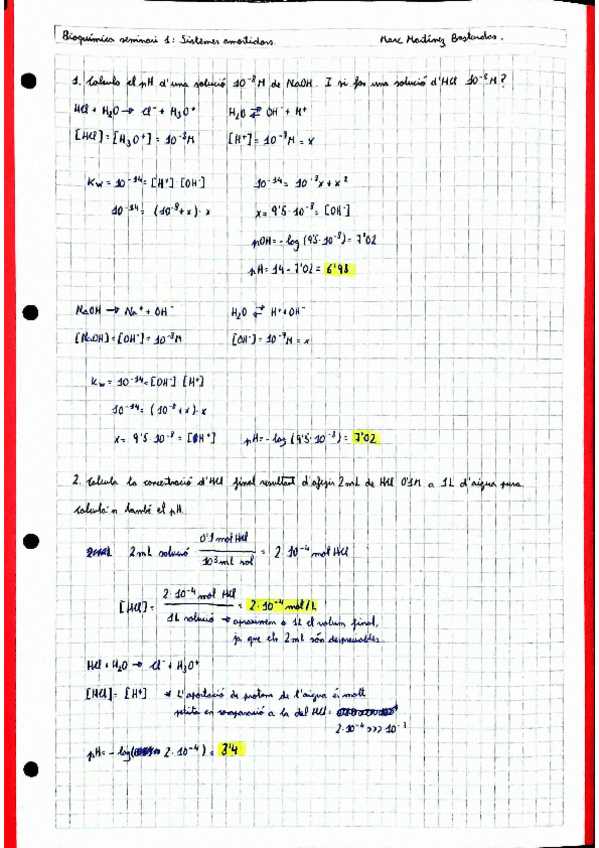 Bioquímica seminari 1: Sistemes amortidors. Marc Martínez Bastardas.
1. Calcula el pH d'una solució 10⁻⁸ M de NaOH. I si fos una solució d'HCl 10⁻⁸ M?
HCl + H₂O → Cl⁻ + H₃O⁺ H₂O ⇄ OH⁻ + H⁺
[HCl] = [H₃O⁺] = 10⁻⁸M [H⁺] = 10⁻⁷M = x
Kw = 10⁻¹⁴ = [H⁺] [OH⁻] 10⁻¹⁴ = 10⁻⁸x + x²
10⁻¹⁴ = (10⁻⁸ + x) · x x = 9'5 · 10⁻⁸ = [OH⁻]
pOH = - log (9'5 · 10⁻⁸) = 7'02
pH = 14 - 7'02 = 6'98
NaOH → Na⁺ + OH⁻ H₂O ⇄ H⁺ + OH⁻
[NaOH] = [OH⁻] = 10⁻⁸M [OH⁻] = 10⁻⁷M = x
Kw = 10⁻¹⁴ = [OH⁻] [H⁺]
10⁻¹⁴ = (10⁻⁸ + x) · x
x = 9'5 · 10⁻⁸ = [H⁺] pH = - log (9'5 · 10⁻⁸) = 7'02
2. Calcula la concentració d'HCl final resultant d'afegir 2 mL de HCl 0'1M a 1L d'aigua pura.
Calcula'n també el pH.
0'1 mol HCl
2 mL solució = 2 · 10⁻⁴ mol HCl
10³ mL sol
2 · 10⁻⁴ mol HCl
[HCl] = = 2 · 10⁻⁴ mol/L
1L solució → aproximem a 1L el volum final,
ja que els 2 mL són despreciables.
HCl + H₂O → Cl⁻ + H₃O⁺
[HCl] = [H⁺] * L'aportació de protons de l'aigua és molt
petita en comparació a la del HCl:
2 · 10⁻⁴ >>> 10⁻⁷
pH = - log( 2 · 10⁻⁴) = 3'4